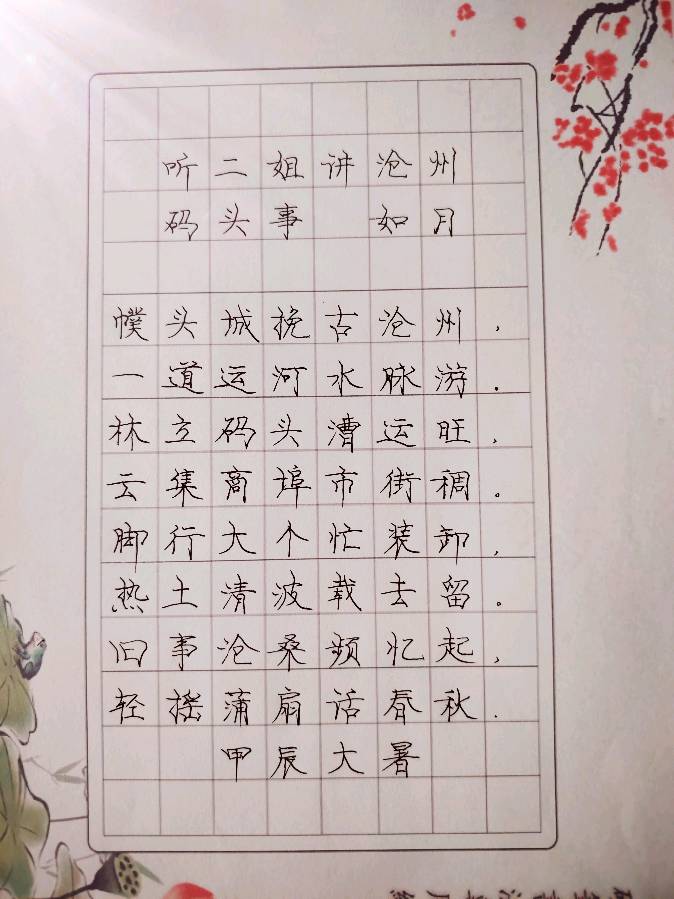 听二姐讲沧州
码头事 如月
幞头城挽古沧州,
一道运河水脉游.
林立码头漕运旺,
云集商埠市街稠。
脚行大个忙装卸,
热土清波载去留。
旧事沧桑频忆起,
轻摇蒲扇话春秋.
甲辰大暑